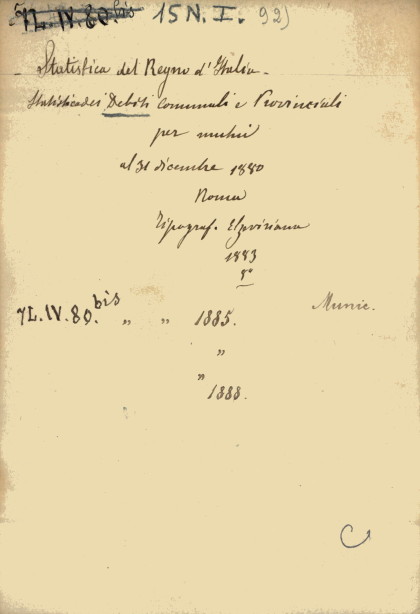 7L.IV.80.bis 15 N. I. 92)
Statistica del Regno d'Italia.
Statistica dei Debiti Comunali e Provinciali
per mutui
al 31 dicembre 1880
Roma
Tipograf. Elzeviriana
1883
8°
7L.IV.80.bis „ „ 1885. Munic.
„
„ 1888.
C